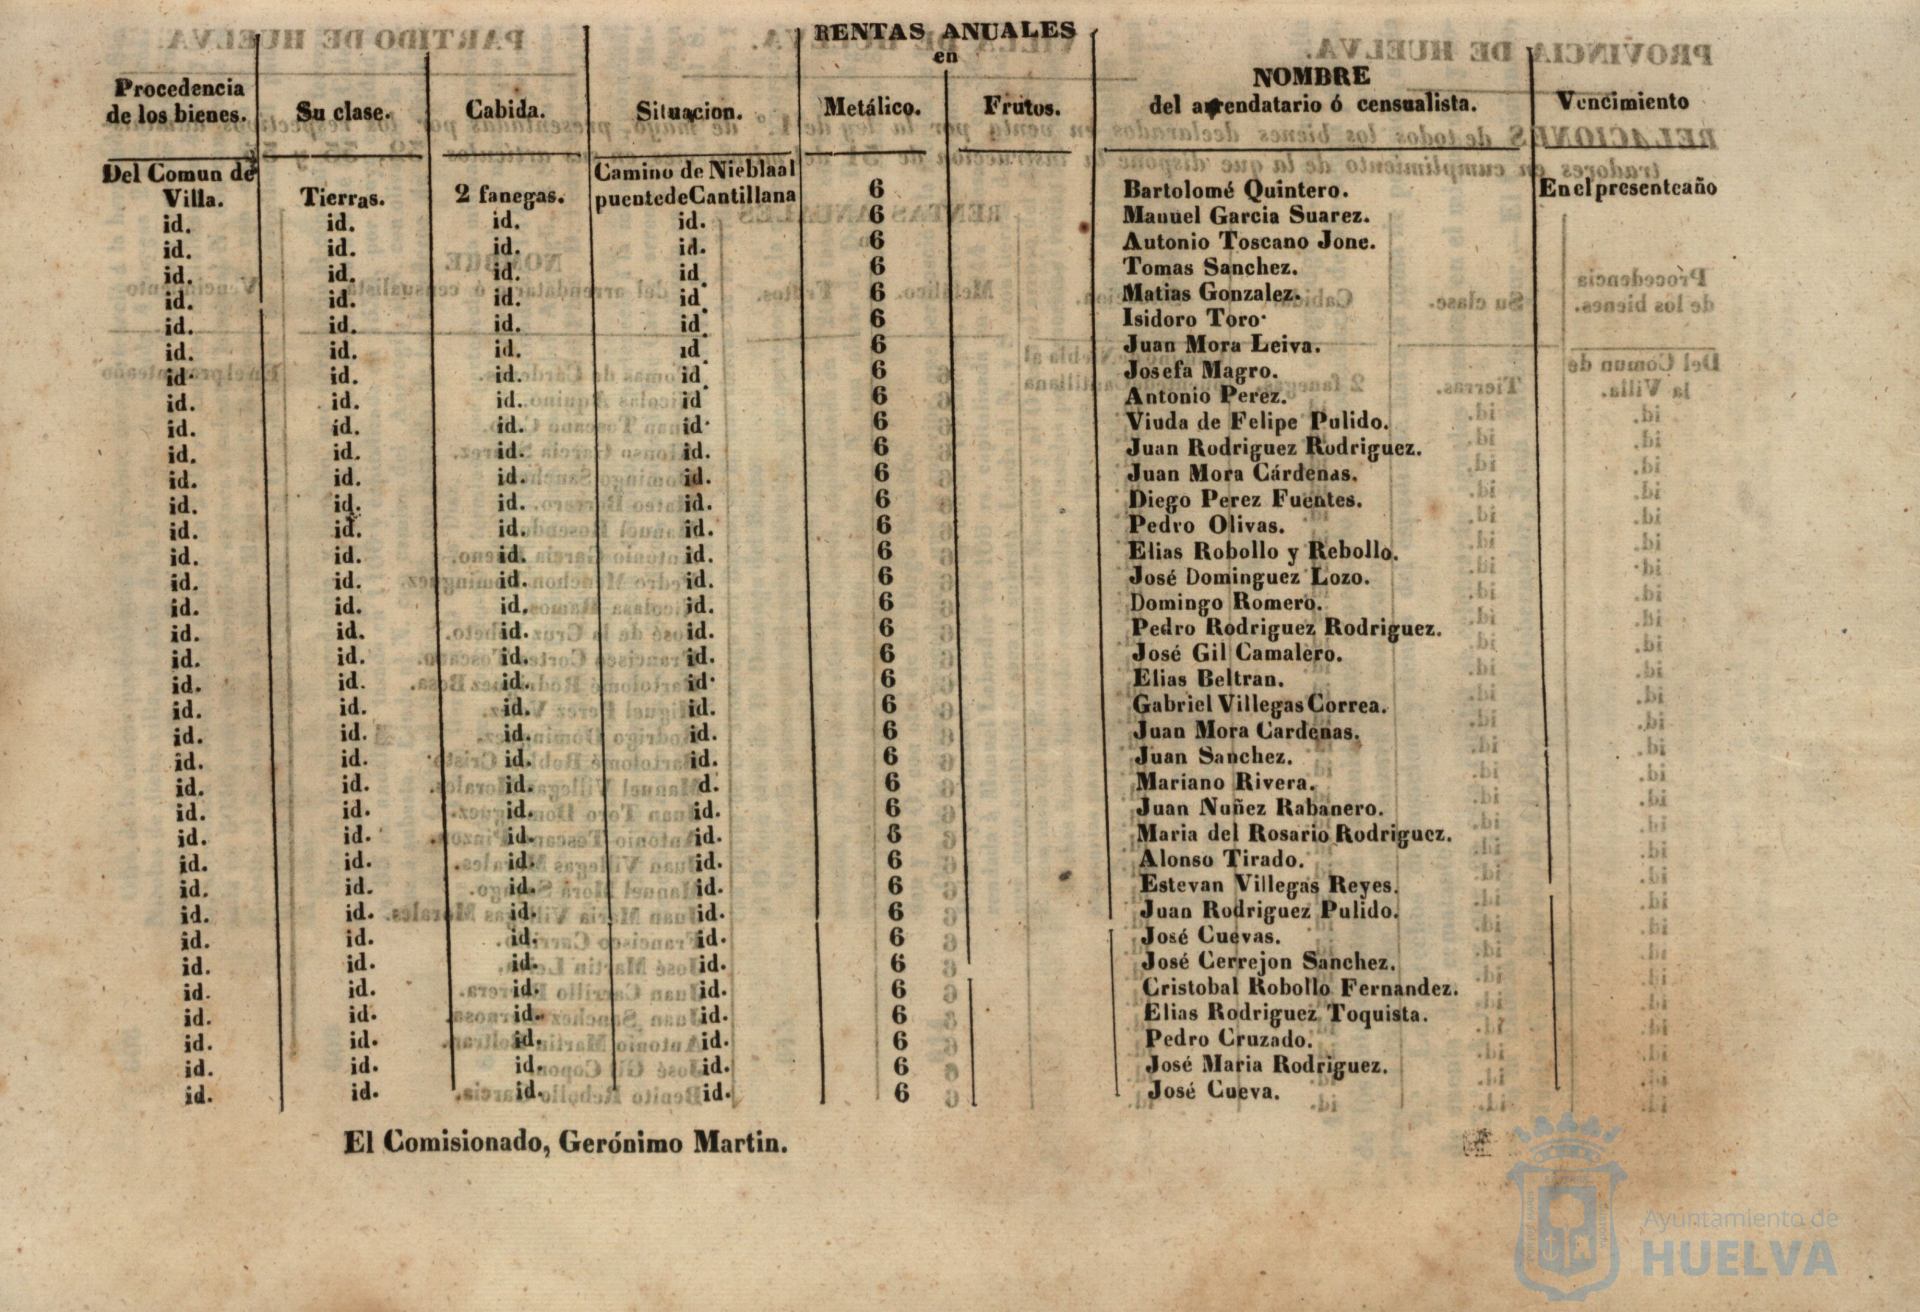 RENTAS ANUALES
en
Procedencia de los bienes. Su clase. Cabida. Situacion. Metálico. Frutos. NOMBRE del arrendatario ó censualista. Vencimiento
Del Comun de Villa. Tierras. 2 fanegas. Camino de Nieblaal puentedeCantillana 6 Bartolomé Quintero. Enelpresenteaño
id. id. id. id. 6 Manuel Garcia Suarez.
id. id. id. id. 6 Autonio Toscano Jone.
id. id. id. id 6 Tomas Sanchez.
id. id. id. id 6 Matias Gonzalez.
id. id. id. id 6 Isidoro Toro
id. id. id. id 6 Juan Mora Leiva.
id. id. id. id 6 Josefa Magro.
id. id. id. id 6 Antonio Perez.
id. id. id. id 6 Viuda de Felipe Pulido.
id. id. id. id. 6 Juan Rodriguez Rodriguez.
id. id. id. id. 6 Juan Mora Cárdenas.
id. id. id. id. 6 Diego Perez Fuentes.
id. id. id. id. 6 Pedro Olivas.
id. id. id. id. 6 Elias Robollo y Rebollo.
id. id. id. id. 6 José Dominguez Lozo.
id. id. id. id. 6 Domingo Romero.
id. id. id. id. 6 Pedro Rodriguez Rodriguez.
id. id. id. id. 6 José Gil Camalero.
id. id. id. id 6 Elias Beltran.
id. id. id. id. 6 Gabriel Villegas Correa.
id. id. id. id. 6 Juan Mora Cardenas.
id. id. id. id. 6 Juan Sanchez.
id. id. id. d. 6 Mariano Rivera.
id. id. id. id. 6 Juan Nuñez Rabanero.
id. id. id. id. 6 Maria del Rosario Rodriguez.
id. id. id. id. 6 Alonso Tirado.
id. id. id. id. 6 Estevan Villegas Reyes.
id. id. id. id. 6 Juan Rodriguez Pulido.
id. id. id. id. 6 José Cuevas.
id. id. id. id. 6 José Cerrejon Sanchez.
id. id. id. id. 6 Cristobal Robollo Fernandez.
id. id. id. id. 6 Elias Rodriguez Toquista.
id. id. id. id. 6 Pedro Cruzado.
id. id. id. id. 6 José Maria Rodriguez.
id. id. id. id. 6 José Cueva.
El Comisionado, Gerónimo Martin.
Ayuntamiento de
HUELVA